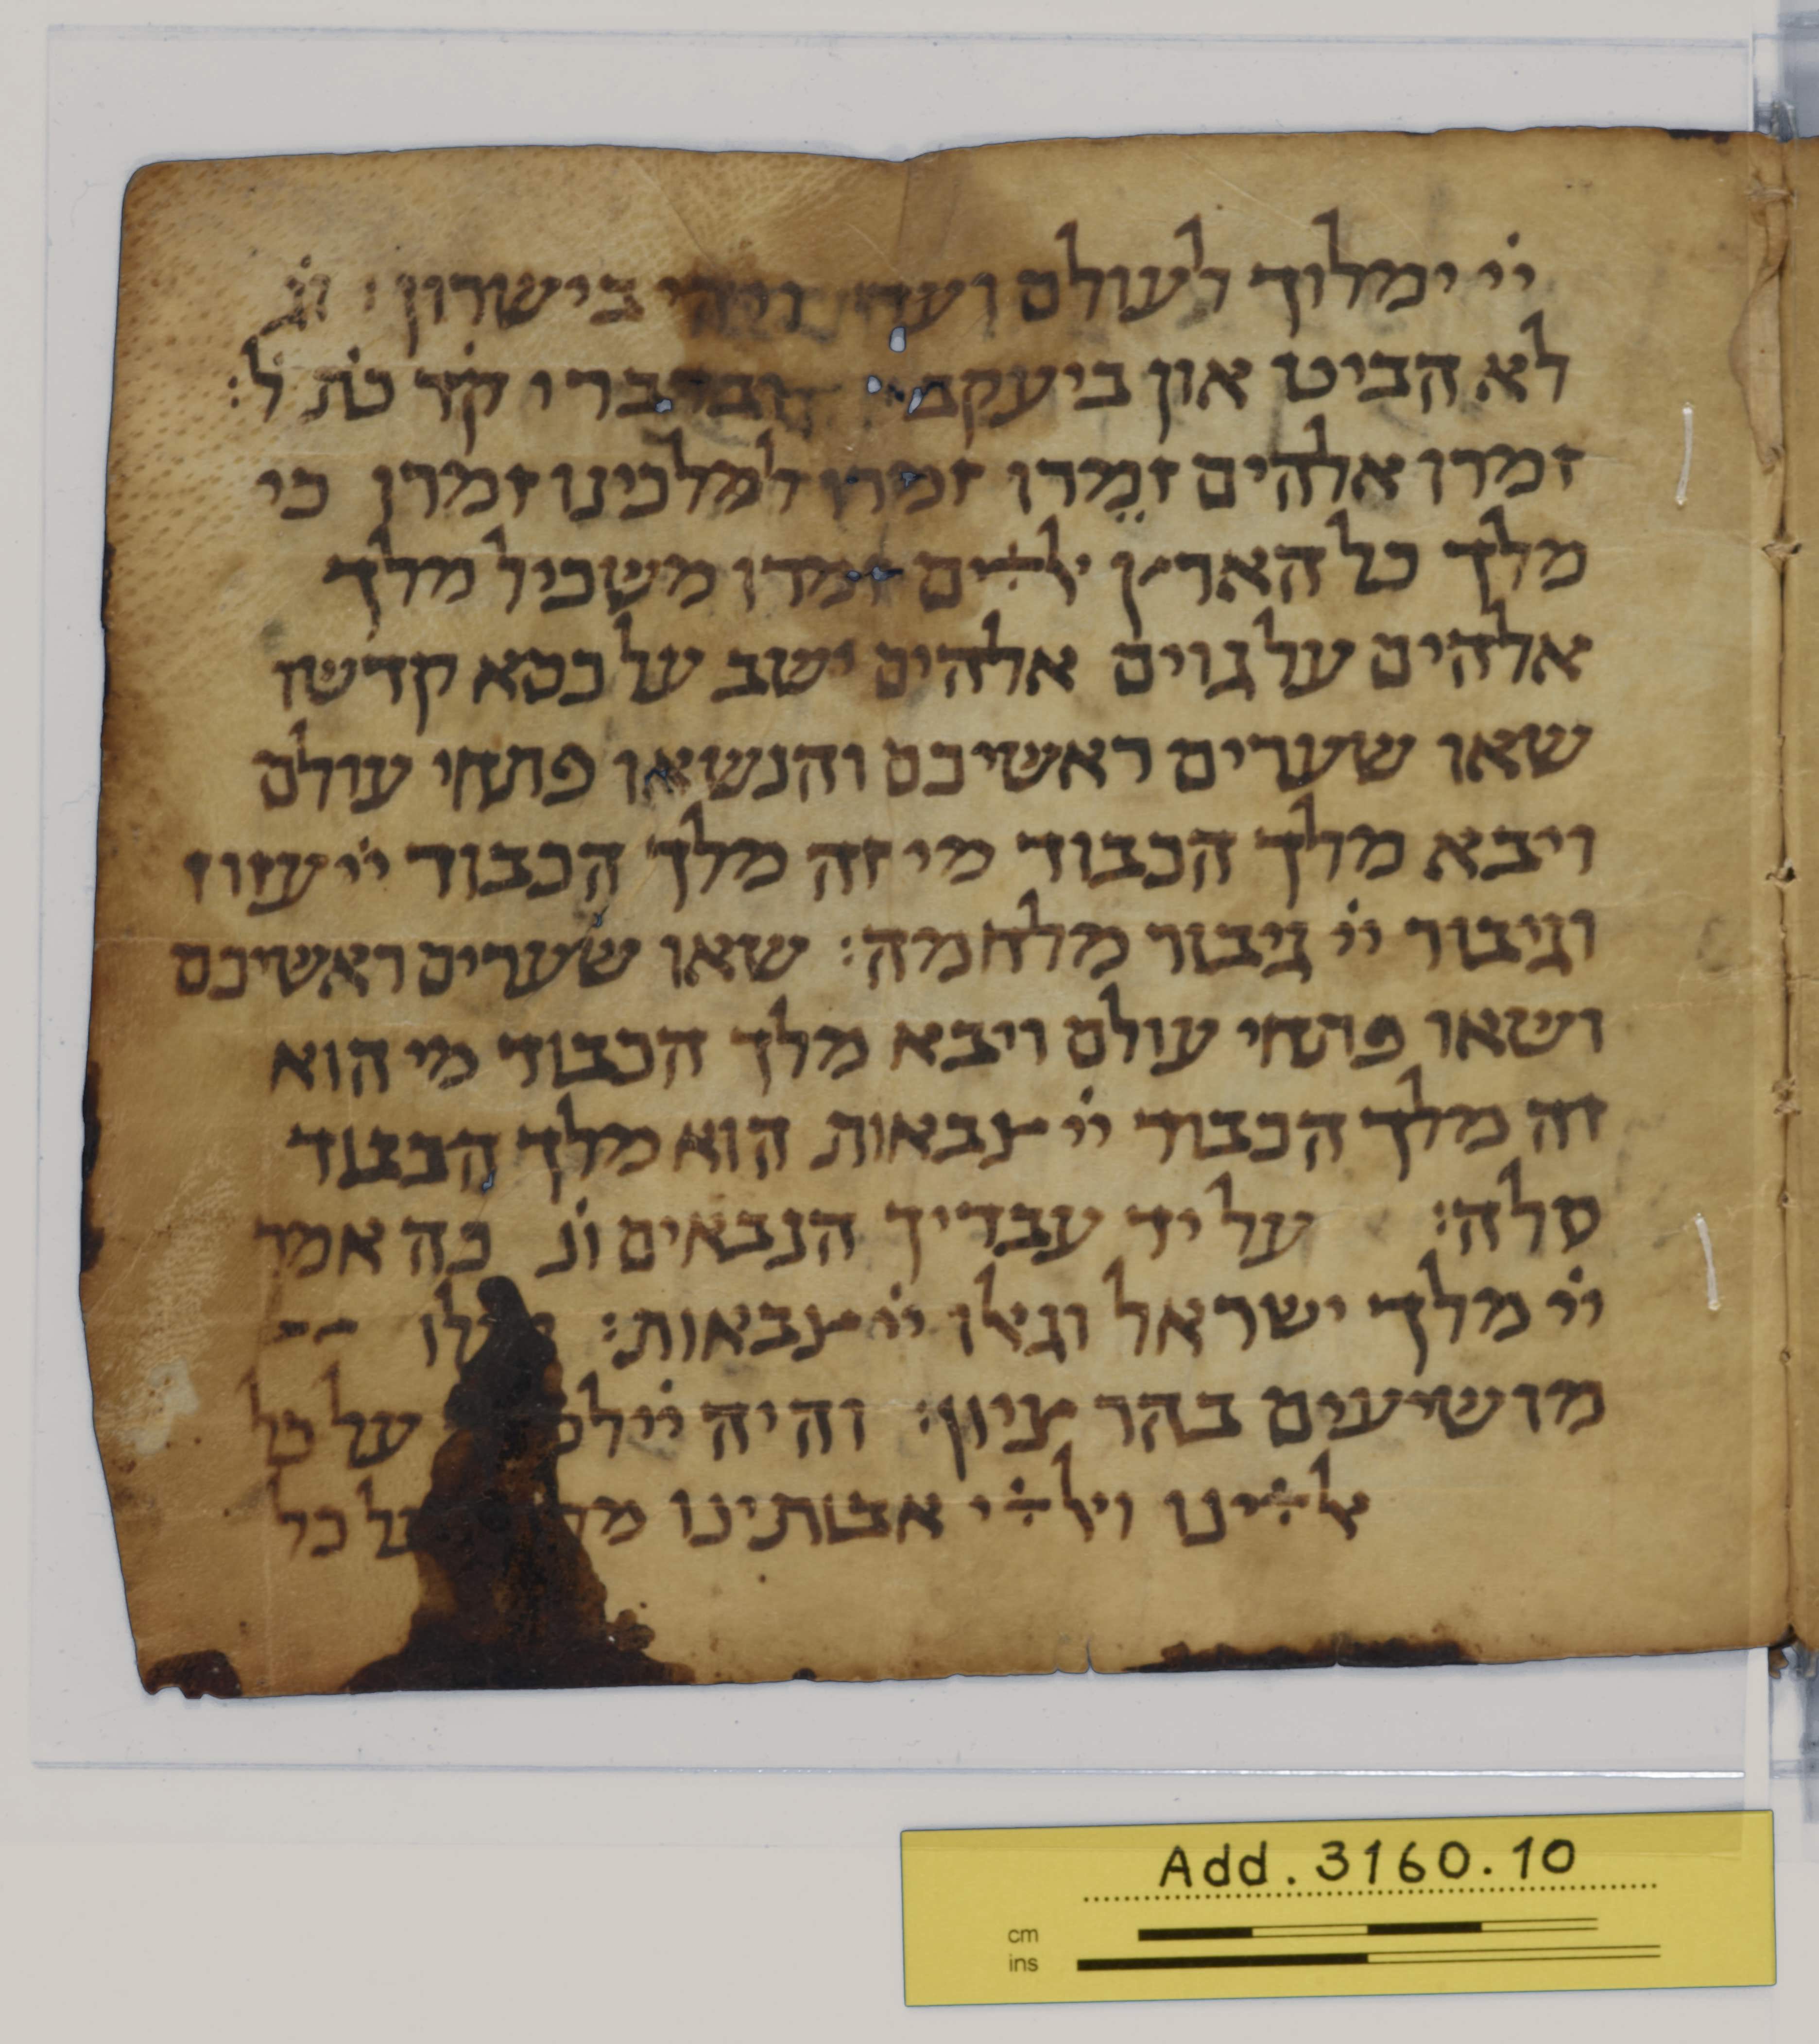 ייי ימלוך לעולם ועד ויהי בישרון: וג
לא הביט און ביעקב ובדברי קד כת ל:
זמרו אלהים זמרו זמרו למלכינו זמרו כי
מלך כל הארץ אלהים זמרו משכיל מלך
אלהים על גוים אלהים ישב על כסא קדשו
שאו שערים ראשיכם והנשאו פתחי עולם
ויבא מלך הכבוד מי זה מלך הכבוד ייי עזוז
וגיבור ייי גיבור מלחמה: שאו שערים ראשיכם
ושאו פתחי עולם ויבא מלך הכבוד מי הוא
זה מלך הכבוד ייי צבאות הוא מלך הכבוד
סלה: על יד עבדיך הנביאים וג כה אמר
ייי מלך ישראל וגאלו ייי צבאות:
מושיעים בהר ציון: והיה ייי על כל
אלהינו ואלהי אבותינו על כל
Add. 3160.10
cm
ins